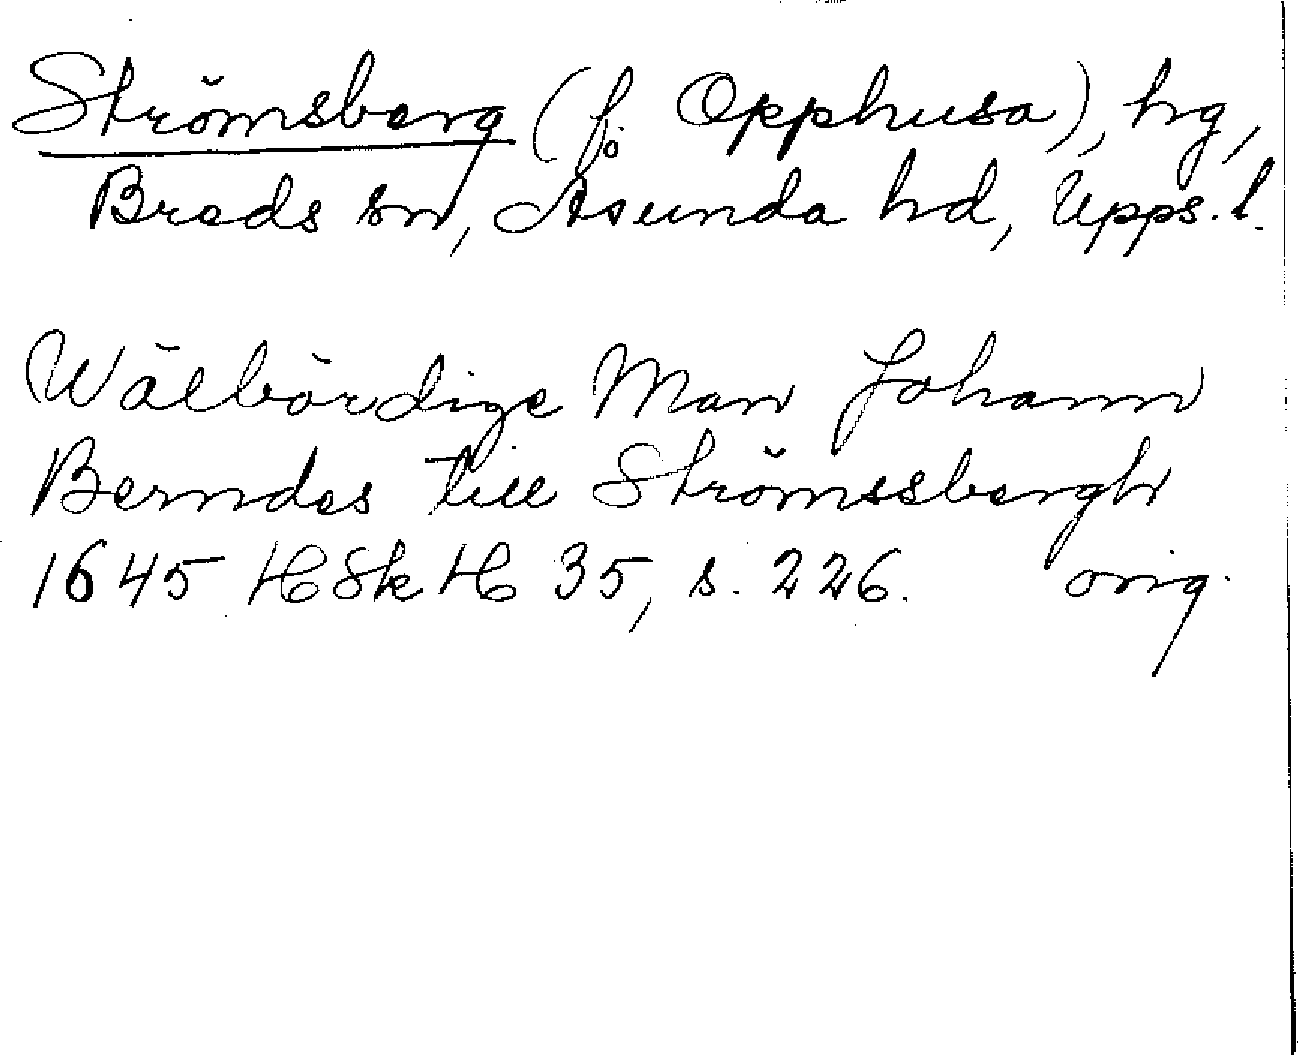 Strömsberg (f. Opphusa), hg,
Breds sn, Åsunda hd, Upps. l.
Wälbördige Man Johann
Berndes till Strömssbergh
1645 HSkH 35, s. 226. orig.